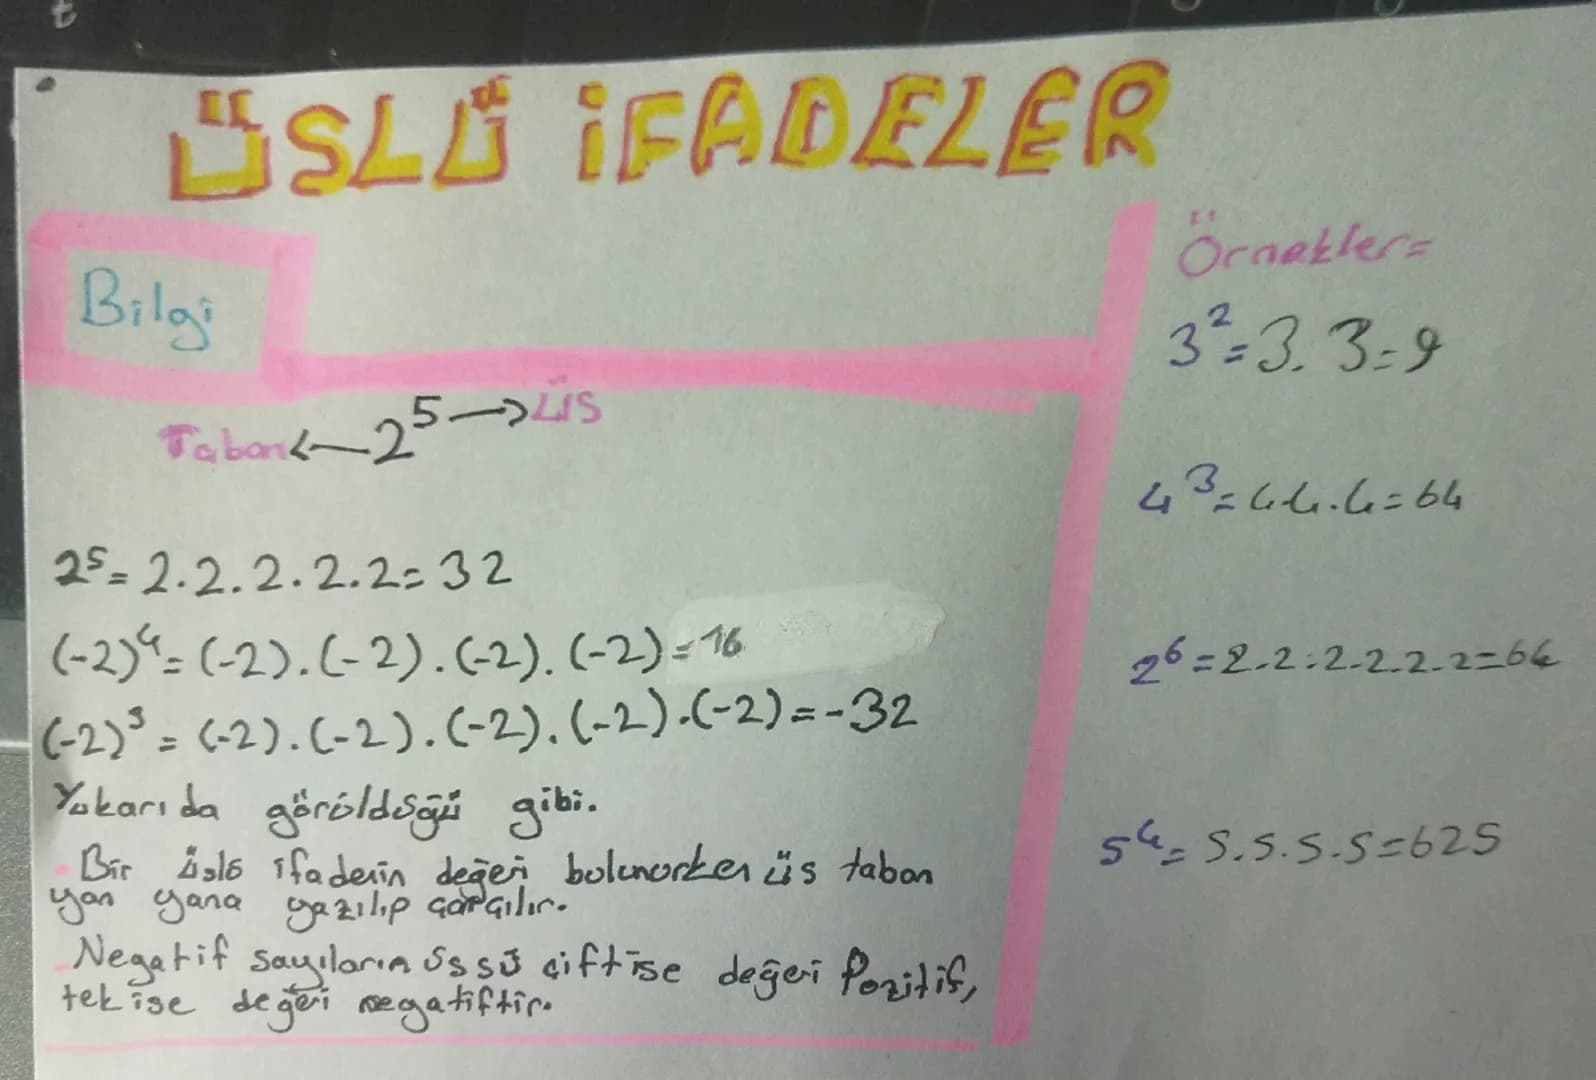 ÜSLÜ İFADELER
Bilgi
Taban ← 2⁵ → ÜS
2⁵ = 2.2.2.2.2 = 32
(-2)⁴ = (-2).(-2).(-2).(-2) = 16
(-2)⁵ = (-2).(-2).(-2).(-2).(-2) = -32
Yukarıda görüldüğü gibi.
- Bir üslü ifadenin değeri bulunurken üs taban
yan yana yazılıp çarpılır.
- Negatif sayıların üssü çift ise değeri Pozitif,
tek ise değeri negatiftir.
Örnekler=
3² = 3.3 = 9
4³ = 4.4.4 = 64
2⁶ = 2.2.2.2.2.2 = 64
5⁴ = 5.5.5.5 = 625